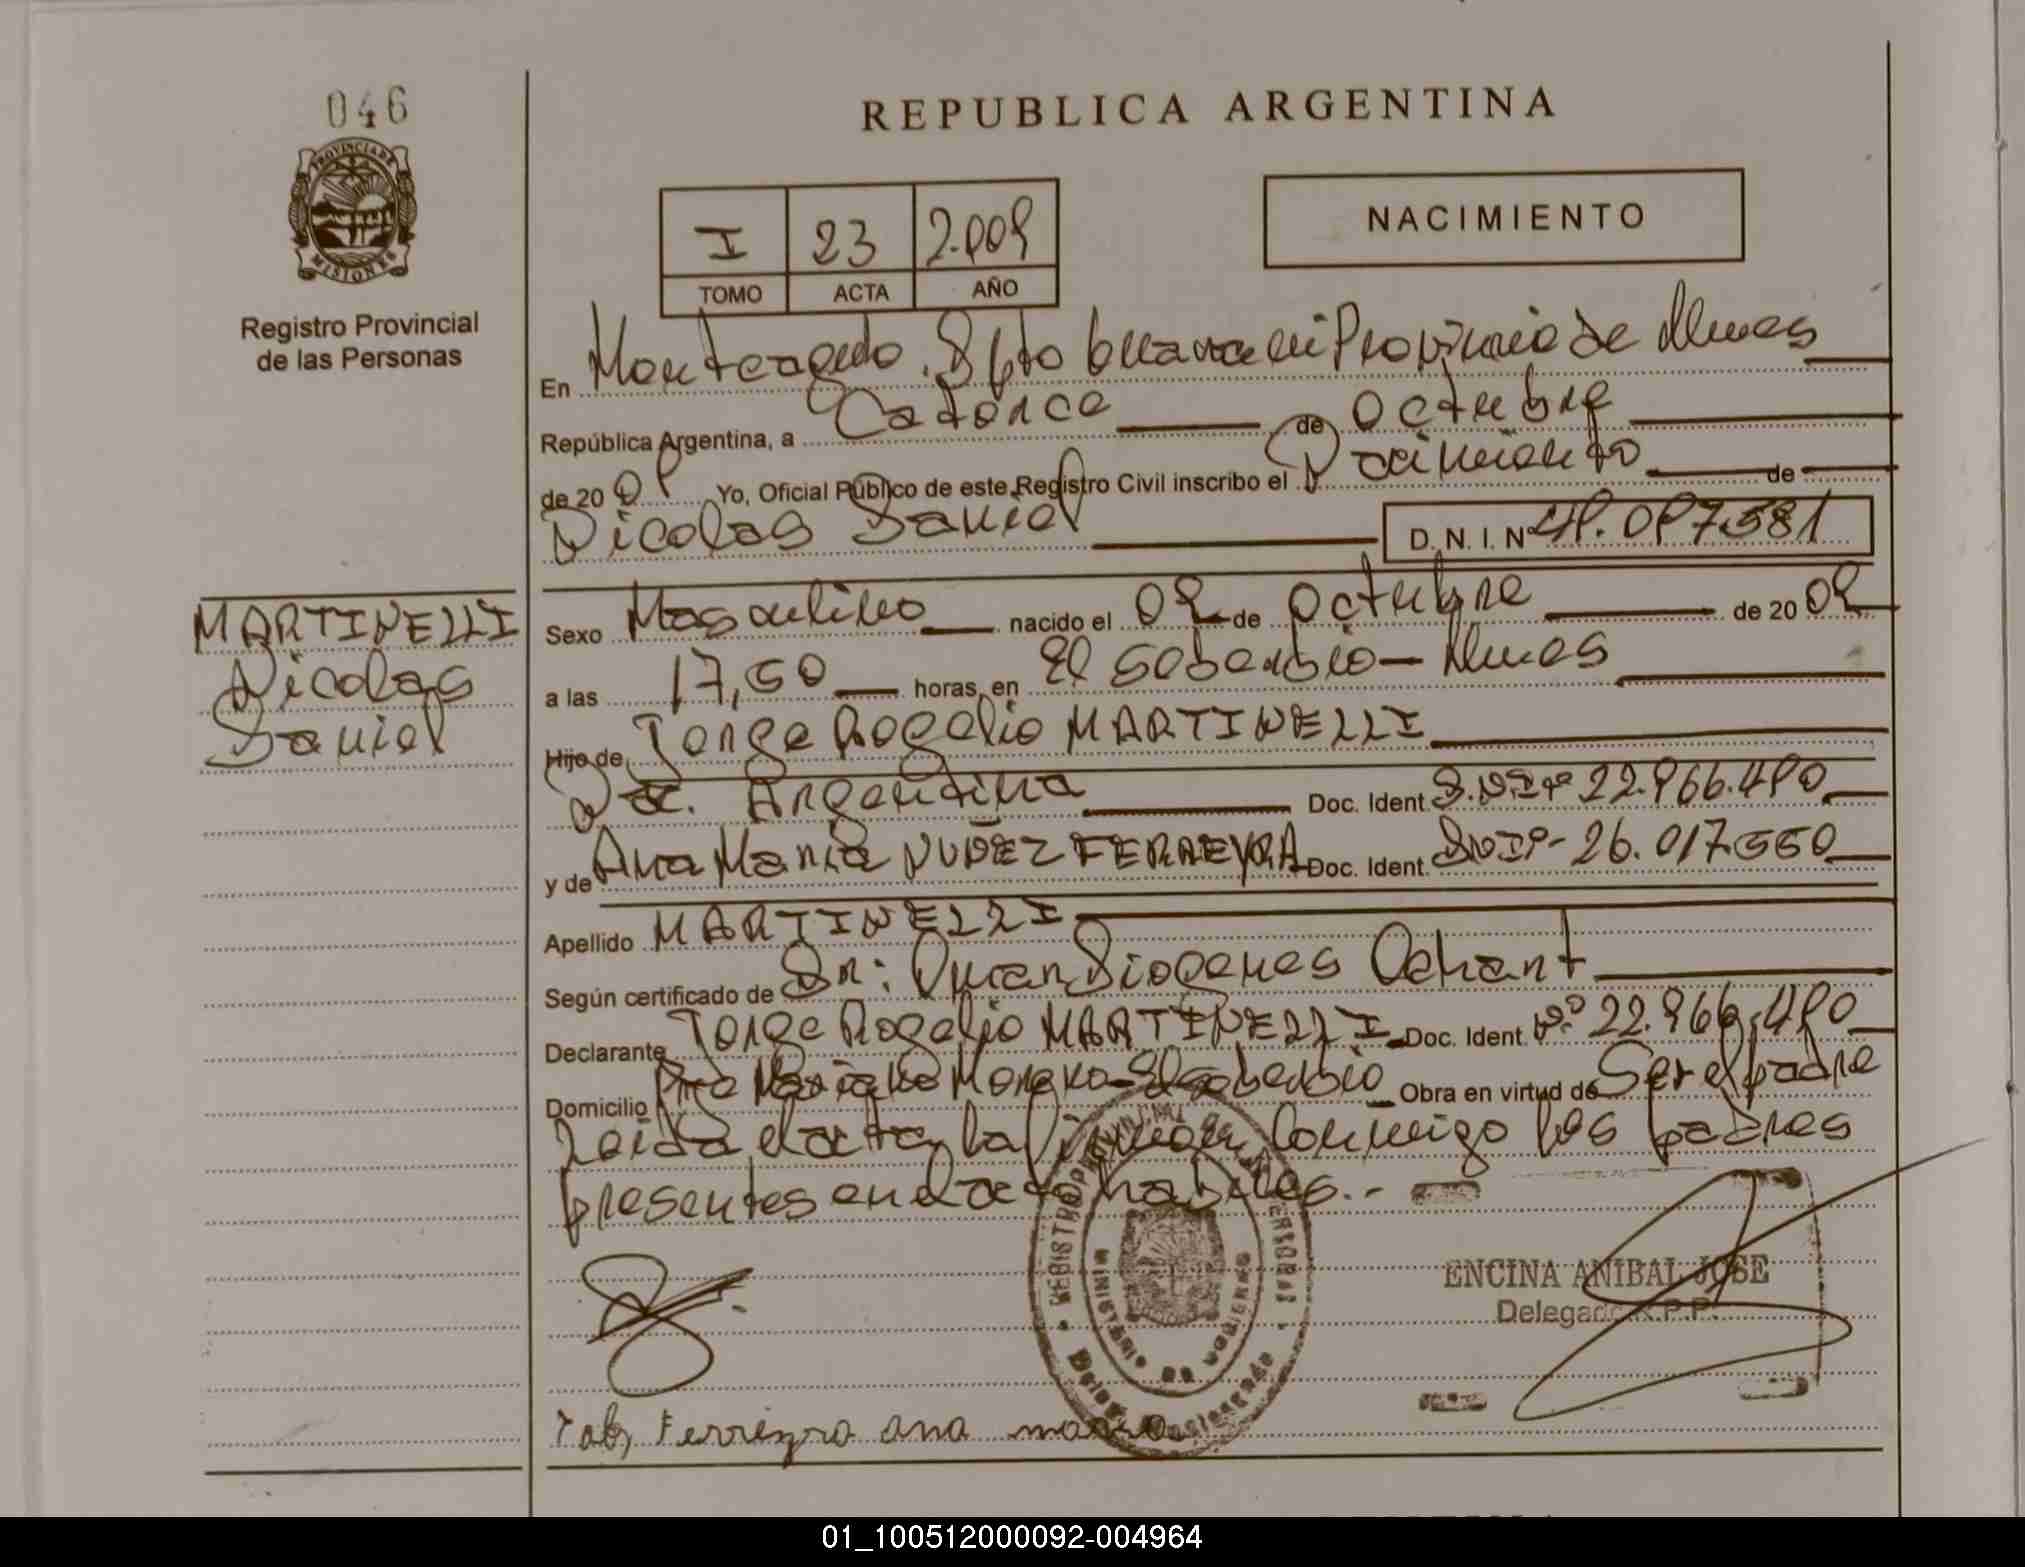 046
REPUBLICA ARGENTINA
PROVINCIA DE
MISIONES
Registro Provincial
de las Personas
I 23 2.009
TOMO ACTA AÑO
NACIMIENTO
En Monteagudo. Dpto Guarani Provincia de Mnes
República Argentina, a Catorce de Octubre
de 20 09 Yo, Oficial Público de este Registro Civil inscribo el Nacimiento de
Nicolas Daniel D. N. I. Nº 49.097.581
MARTINELLI
Nicolas
Daniel
Sexo Masculino nacido el 09 de Octubre de 20 09
a las 17,50 horas, en El Soberbio - Mnes
Hijo de Jorge Rogelio MARTINELLI
Nac. Argentina Doc. Ident. D.N.I Nº 22.966.490
y de Ana Maria NUÑEZ FERREYRA Doc. Ident. DNIº- 26.017.550
Apellido MARTINELLI
Según certificado de Dr: Diogenes
Declarante Jorge Rogelio MARTINELLI Doc. Ident. Nº 22.966.490
Domicilio Mariano Moreno - El Soberbio Obra en virtud de Ser el padre
Leida el acta, la firman conmigo los padres
presentes en el acto habiles.-
REGISTRO PROVINCIAL DE LAS PERSONAS
MINISTERIO DE GOBIERNO
ENCINA ANIBAL JOSE
Delegado R.P.P.
Ferreyra ana maria
01_100512000092-004964